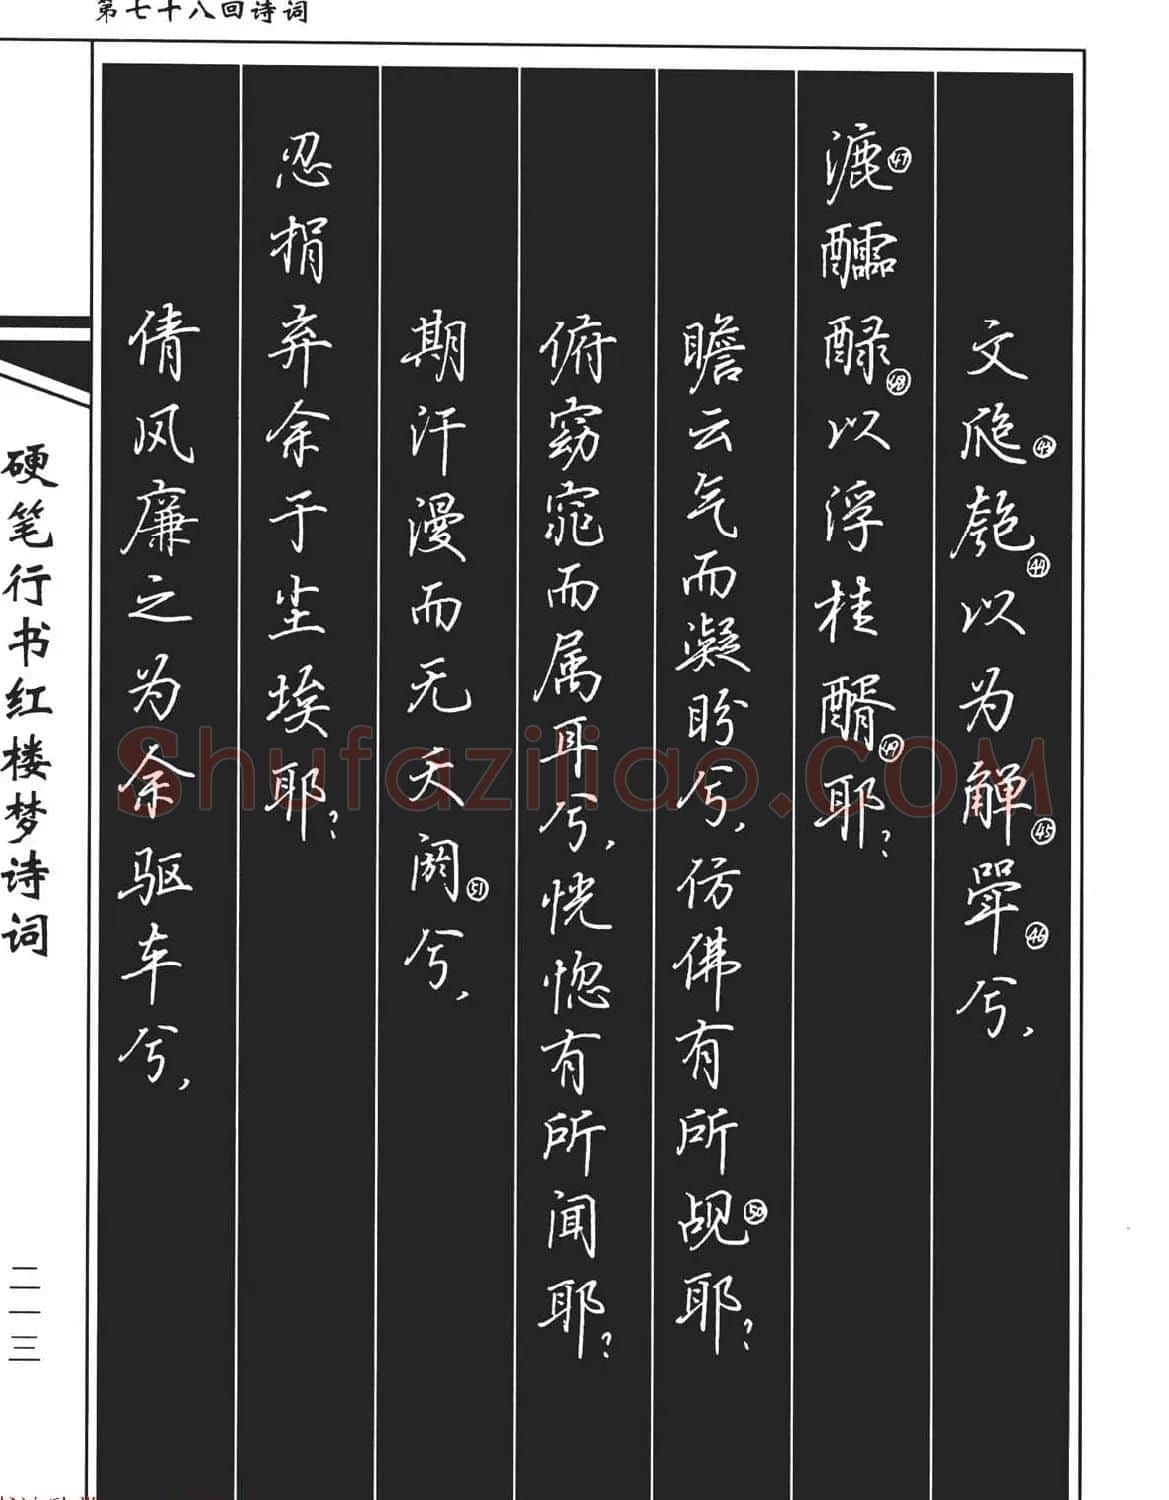 第七十八回诗词
文瓟㊸匏㊹以为觯㊺斝㊻兮,
漉㊼醽醁㊽以浮桂醑㊾耶?
瞻云气而凝盼兮,仿佛有所觇㊿耶?
俯窈窕而属耳兮,恍惚有所闻耶?
期汗漫而无夭阏51兮,
忍捐弃余于尘埃耶?
倩风廉之为余驱车兮,
硬笔行书红楼梦诗词
二一三
Shufaziliao.COM